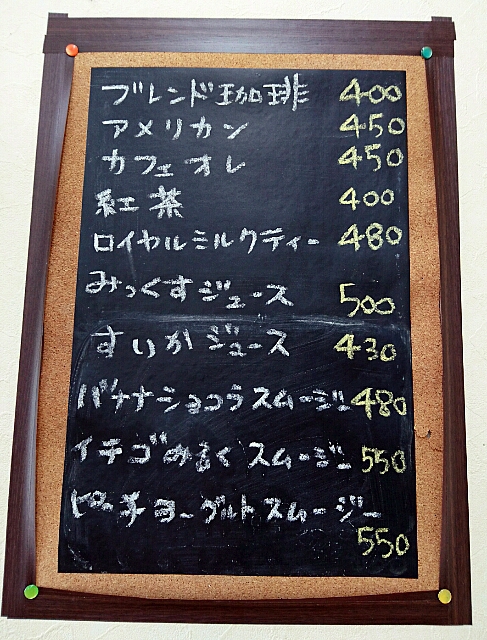 ブレンド珈琲 400
アメリカン 450
カフェオレ 450
紅茶 400
ロイヤルミルクティー 480
みっくすジュース 500
すいかジュース 430
バナナショコラスムージー 480
イチゴみるくスムージー 550
ピーチヨーグルトスムージー
550